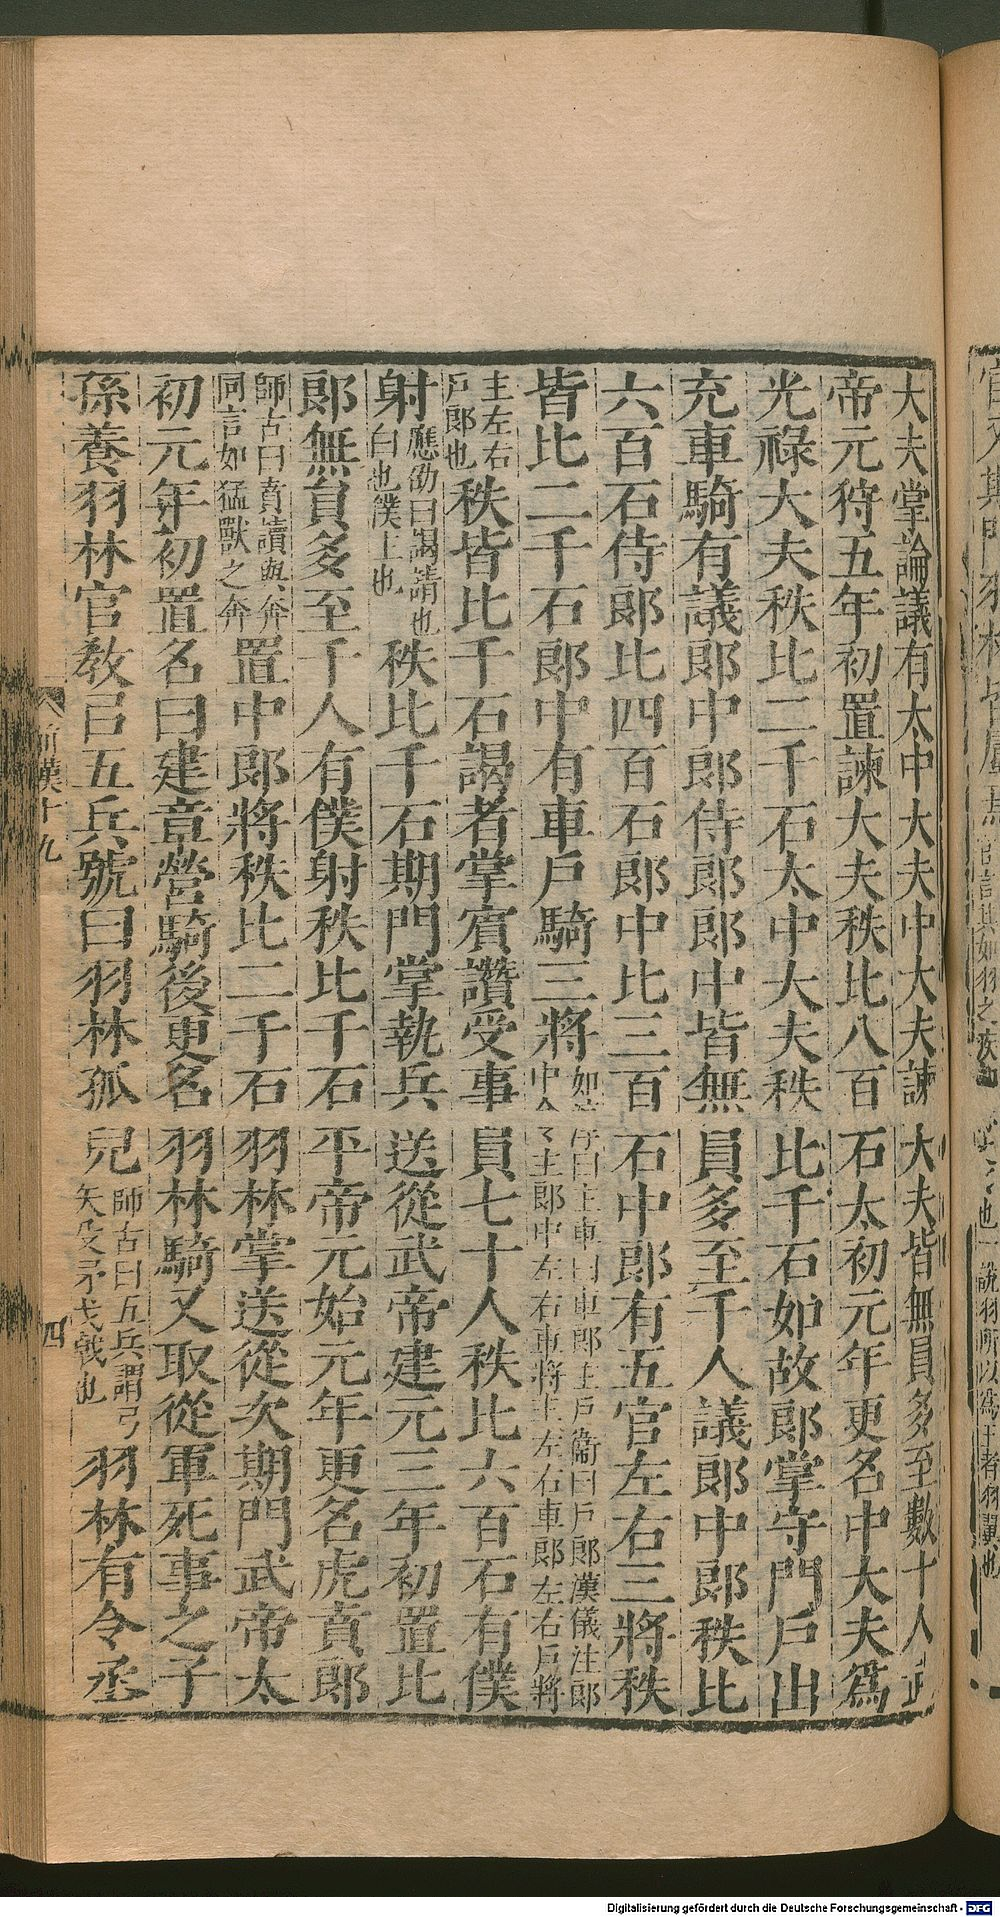 大夫掌論議有太中大夫中大夫諫大夫皆無員多至數十人武
帝元狩五年初置諫大夫秩比八百石太初元年更名中大夫爲
光祿大夫秩比二千石太中大夫秩比千石如故郎掌守門戶出
充車騎有議郎中郎侍郎郎中皆無員多至千人議郎中郎秩比
六百石侍郎比四百石郎中比三百石中郎有五官左右三將秩
皆比二千石郎中有車戶騎三將如曰主車曰車郎主戶衞曰戶郎漢儀注郎中令主郎中左右車將主左右車郎左右戶將
主左右戶郎也秩皆比千石謁者掌賓讚受事員七十人秩比六百石有僕
射應劭曰謁請也白也僕主也秩比千石期門掌執兵送從武帝建元三年初置比
郎無員多至千人有僕射秩比千石平帝元始元年更名虎賁郎
師古曰賁讀與奔同言如猛獸之奔置中郎將秩比二千石羽林掌送從次期門武帝太
初元年初置名曰建章營騎後更名羽林騎又取從軍死事之子
孫養羽林官教曰五兵號曰羽林孤兒師古曰五兵謂弓矢殳矛戈戟也羽林有令丞
前漢十九
四
Digitalisierung gefördert durch die Deutsche Forschungsgemeinschaft - DFG